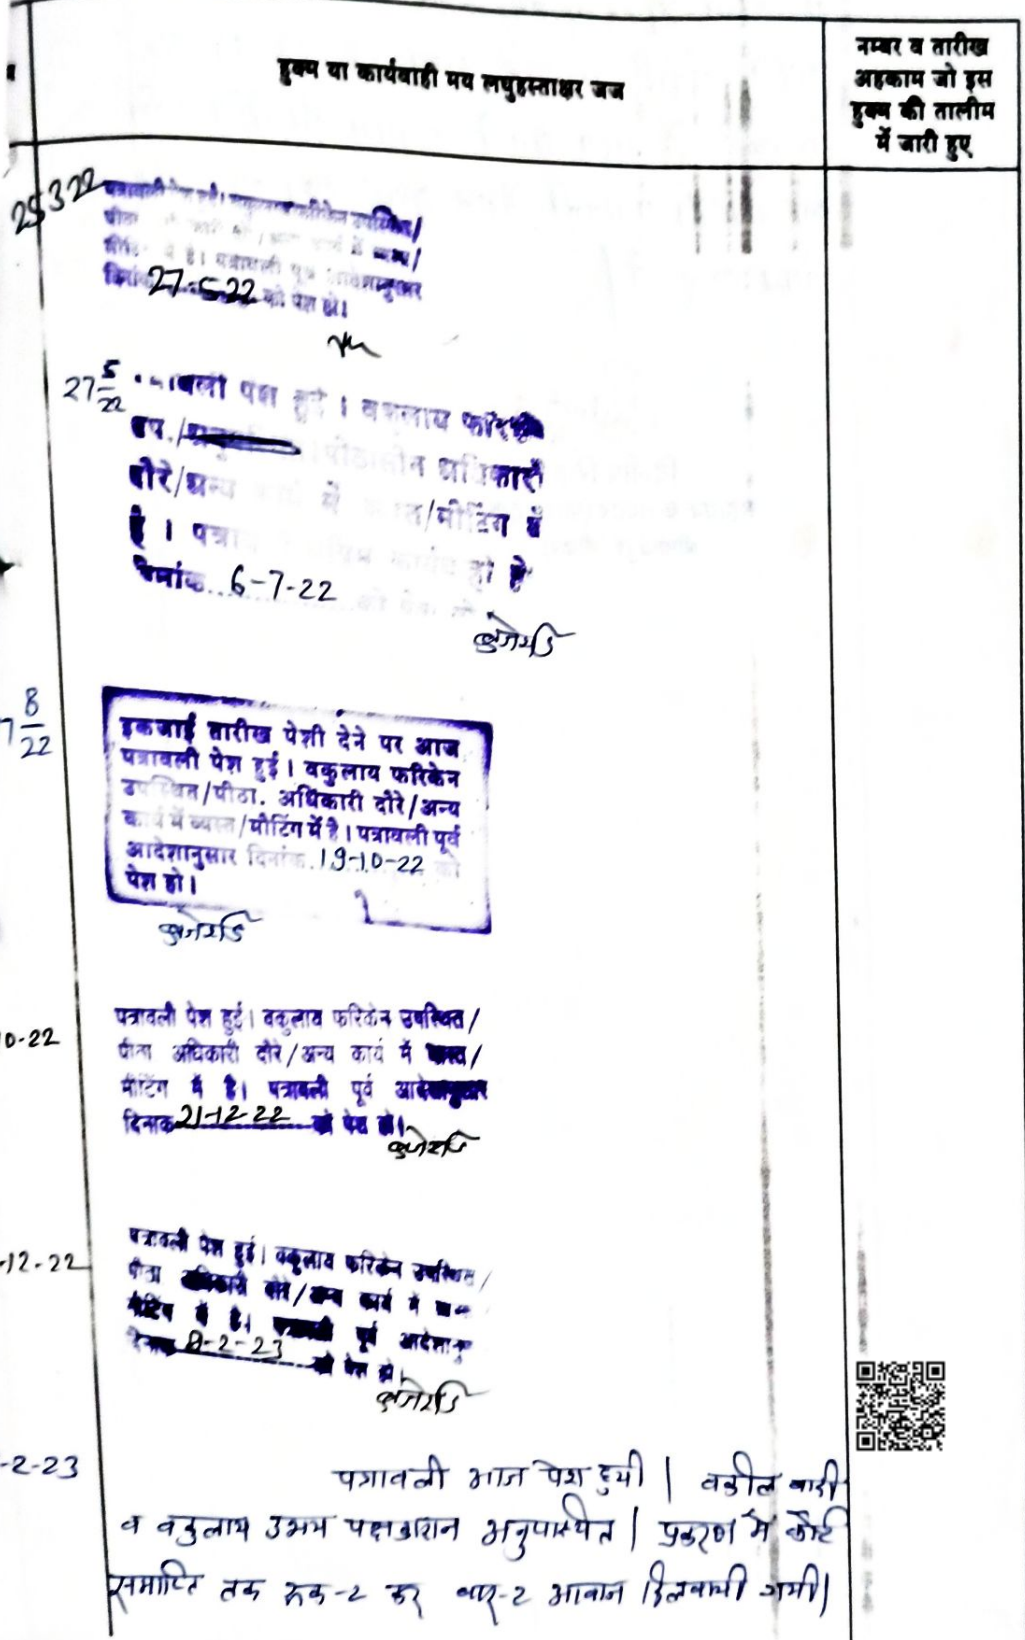 हुक्म या कार्यवाही मय लघुहस्ताक्षर जज
नम्बर व तारीख
अहकाम जो इस
हुक्म की तालीम
में जारी हुए
25 3 22
पत्रावली उपस्थित/
पीठा में व्यस्त/
में है। पत्रावली पूर्व आदेशानुसार
दिनांक 27-5-22 को पेश हो।
27 5/22 पेश हुई । वकुलाय फरिकेन
उप./ पीठासीन अधिकारी
दौरे/अन्य कार्य में /मीटिंग में
है ।
6-7-22
8/22
इकजाई तारीख पेशी देने पर आज
पत्रावली पेश हुई । वकुलाय फरिकेन
उपस्थित/पीठा. अधिकारी दौरे/अन्य
कार्य में व्यस्त/मीटिंग में है । पत्रावली पूर्व
आदेशानुसार दिनांक 19-10-22 को
पेश हो ।
पत्रावली पेश हुई। वकुलाय फरिकेन उपस्थित/
0-22 पीठा अधिकारी दौरे/अन्य कार्य में व्यस्त/
मीटिंग में है। पत्रावली पूर्व आदेशानुसार
दिनांक 21-12-22 को पेश हो।
पत्रावली पेश हुई। वकुलाय फरिकेन उपस्थित/
-12-22 पीठा अधिकारी दौरे/अन्य कार्य में
मीटिंग में है। पत्रावली पूर्व
8-2-23 को पेश हो।
-2-23 पत्रावली आज पेश हुयी | वकील वादी
व वकुलाय उभय पक्षकारान अनुपस्थित | प्रकरण में कोर्ट
समाप्ति तक रूक-2 कर बार-2 आवाज दिलवायी गयी|